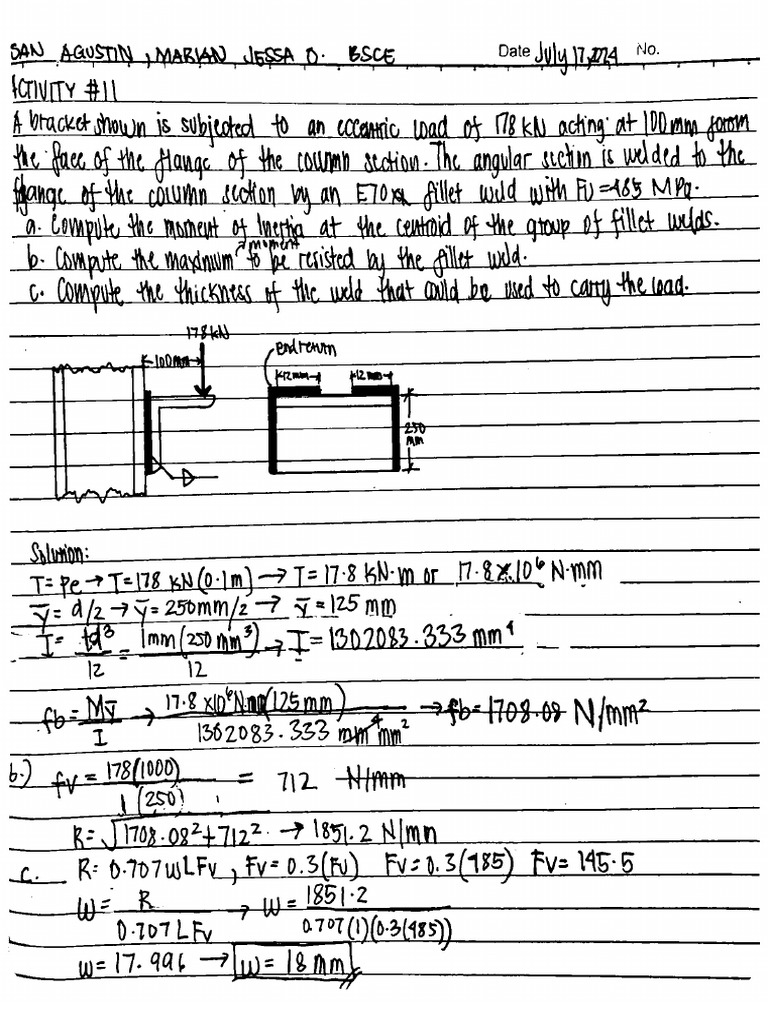 SAN AGUSTIN, MARIAN JESSA O. BSCE Date July 17, 2024 No.
ACTIVITY #11
A bracket shown is subjected to an eccentric load of 178 kN acting at 100mm from
the face of the flange of the column section. The angular section is welded to the
flange of the column section by an E70 fillet weld with Fu = 485 MPa.
a. Compute the moment of Inertia at the centroid of the group of fillet welds.
b. Compute the maximum moment to be resisted by the fillet weld.
c. Compute the thickness of the weld that could be used to carry the load.
178 kN
100mm
End return
12mm 12mm
250
mm
Solution:
T = Pe → T = 178 kN (0.1m) → T = 17.8 kN·m or 17.8 × 10⁶ N·mm
ȳ = d/2 → ȳ = 250mm/2 → ȳ = 125 mm
I = td³/12 = 1mm (250 mm³)/12 → I = 1302083.333 mm⁴
fb = Mȳ/I → 17.8 ×10⁶ N·mm (125 mm)/1302083.333 mm⁴ mm² → fb = 1708.08 N/mm²
b.) fv = 178(1000)/1(250) = 712 N/mm
R = √1708.08² + 712² → 1851.2 N/mm
c. R = 0.707wLFv, Fv = 0.3(Fu) Fv = 0.3(485) Fv = 145.5
w = R/0.707LFv → w = 1851.2/0.707(1)(0.3(485))
w = 17.996 → w = 18 mm